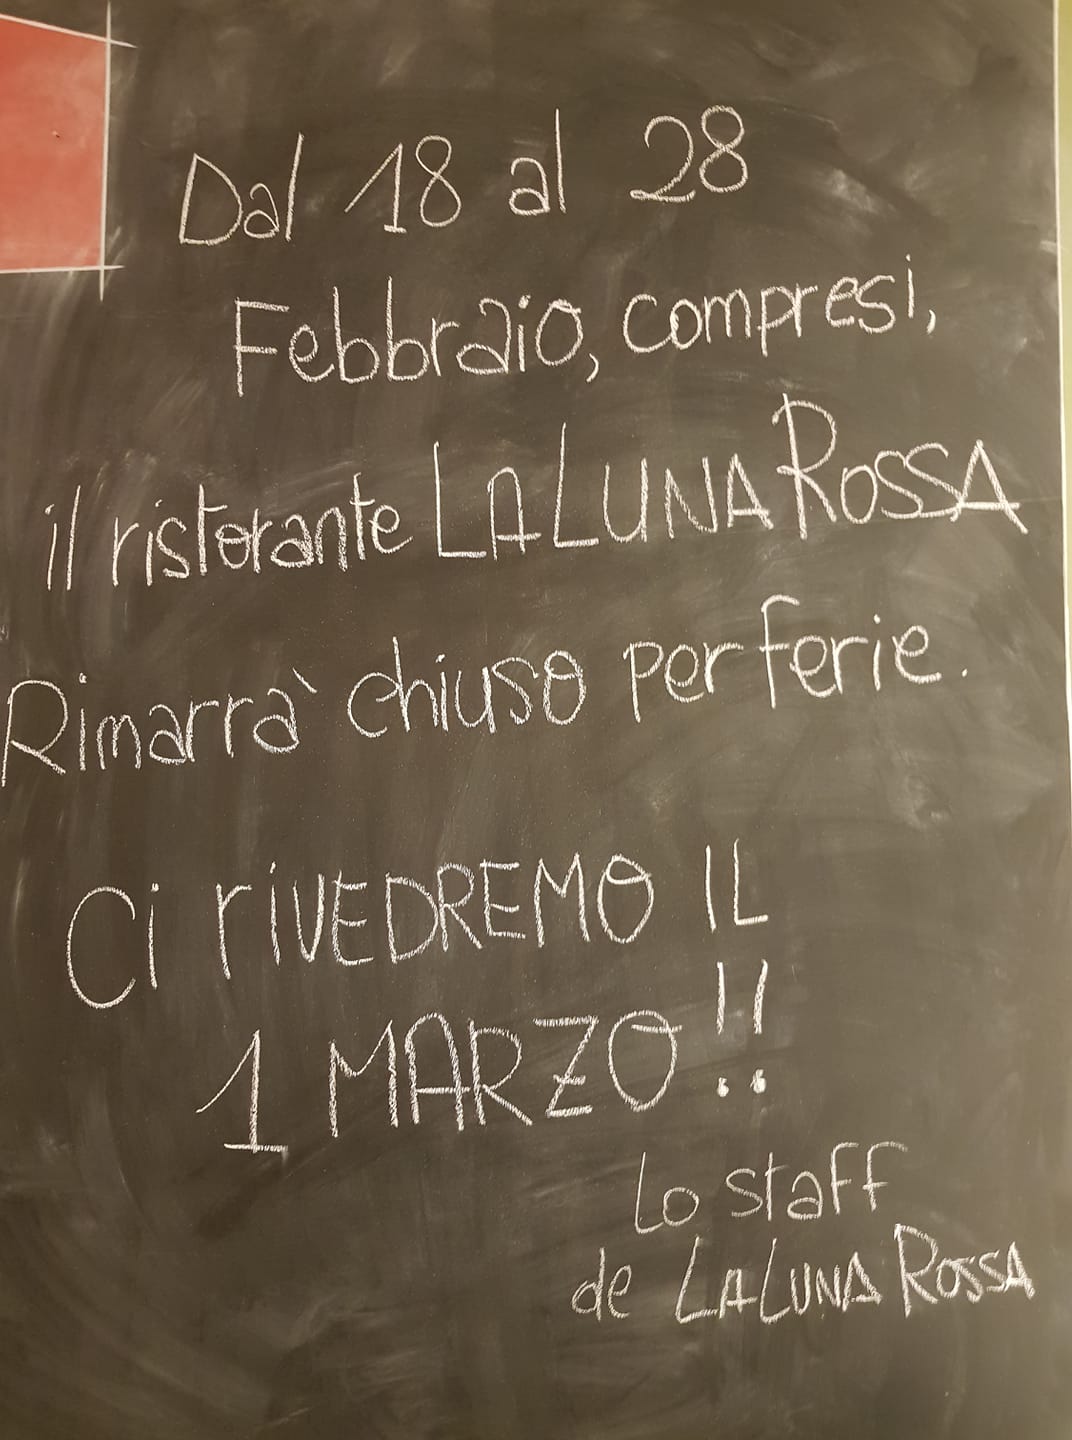 Dal 18 al 28
Febbraio, compresi,
il ristorante LA LUNA ROSSA
Rimarra' chiuso per ferie.
Ci riVEDREMO IL
1 MARZO!!
Lo staff
de LA LUNA ROSSA